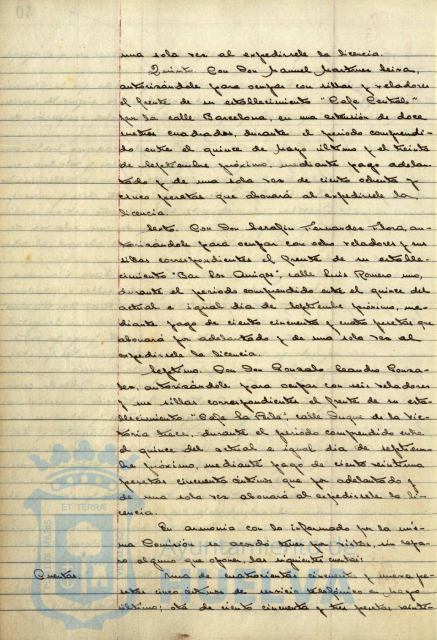 una sola vez al expedirsele la licencia.
Quinto. Con Don Manuel Martínez Leira,
autorizándole para ocupar con sillas y veladores
el frente de su establecimiento "Café Central"
por la calle Barcelona, en una extensión de doce
metros cuadrados, durante el período comprendi-
do entre el quince de Mayo último y el treinta
de Septiembre próximo, mediante pago adelan-
tado y de una sola vez de ciento ochenta y
cinco pesetas que abonará al expedirsele la
licencia.
Sexto. Con Don Serafín Fernández Flora, au-
torizándole para ocupar con ocho veladores y sus
sillas correspondientes el frente de su estable-
cimiento "Bar los Amigos", calle Luis Romero uno,
durante el período comprendido entre el quince del
actual e igual día de Septiembre próximo, me-
diante pago de ciento cincuenta y cuatro pesetas que
abonará por adelantado y de una sola vez al
expedirsele la licencia.
Septimo. Con Don Gonzalo Leandro Gonza-
lez, autorizándole para ocupar con seis veladores
y sus sillas correspondientes el frente de su esta-
blecimiento "Café la Perla", calle Duque de la Vic-
toria trece, durante el período comprendido entre
el quince del actual e igual día de septiem-
bre próximo, mediante pago de ciento veintiuna
pesetas cincuenta céntimos que por adelantado y
de una sola vez abonará al expedirsele la li-
cencia.
En armonía con lo informado por la mis-
ma Comisión se acordó tener por vistas, sin repa-
ro alguno que oponer, las siguientes cuentas:
Cuentas. Una de cuatrocientas cincuenta y nueve pe-
setas cinco céntimos de servicio telefónico en Mayo
último; otra de ciento cincuenta y tres pesetas veinte
Ayuntamiento de
ET TERRA